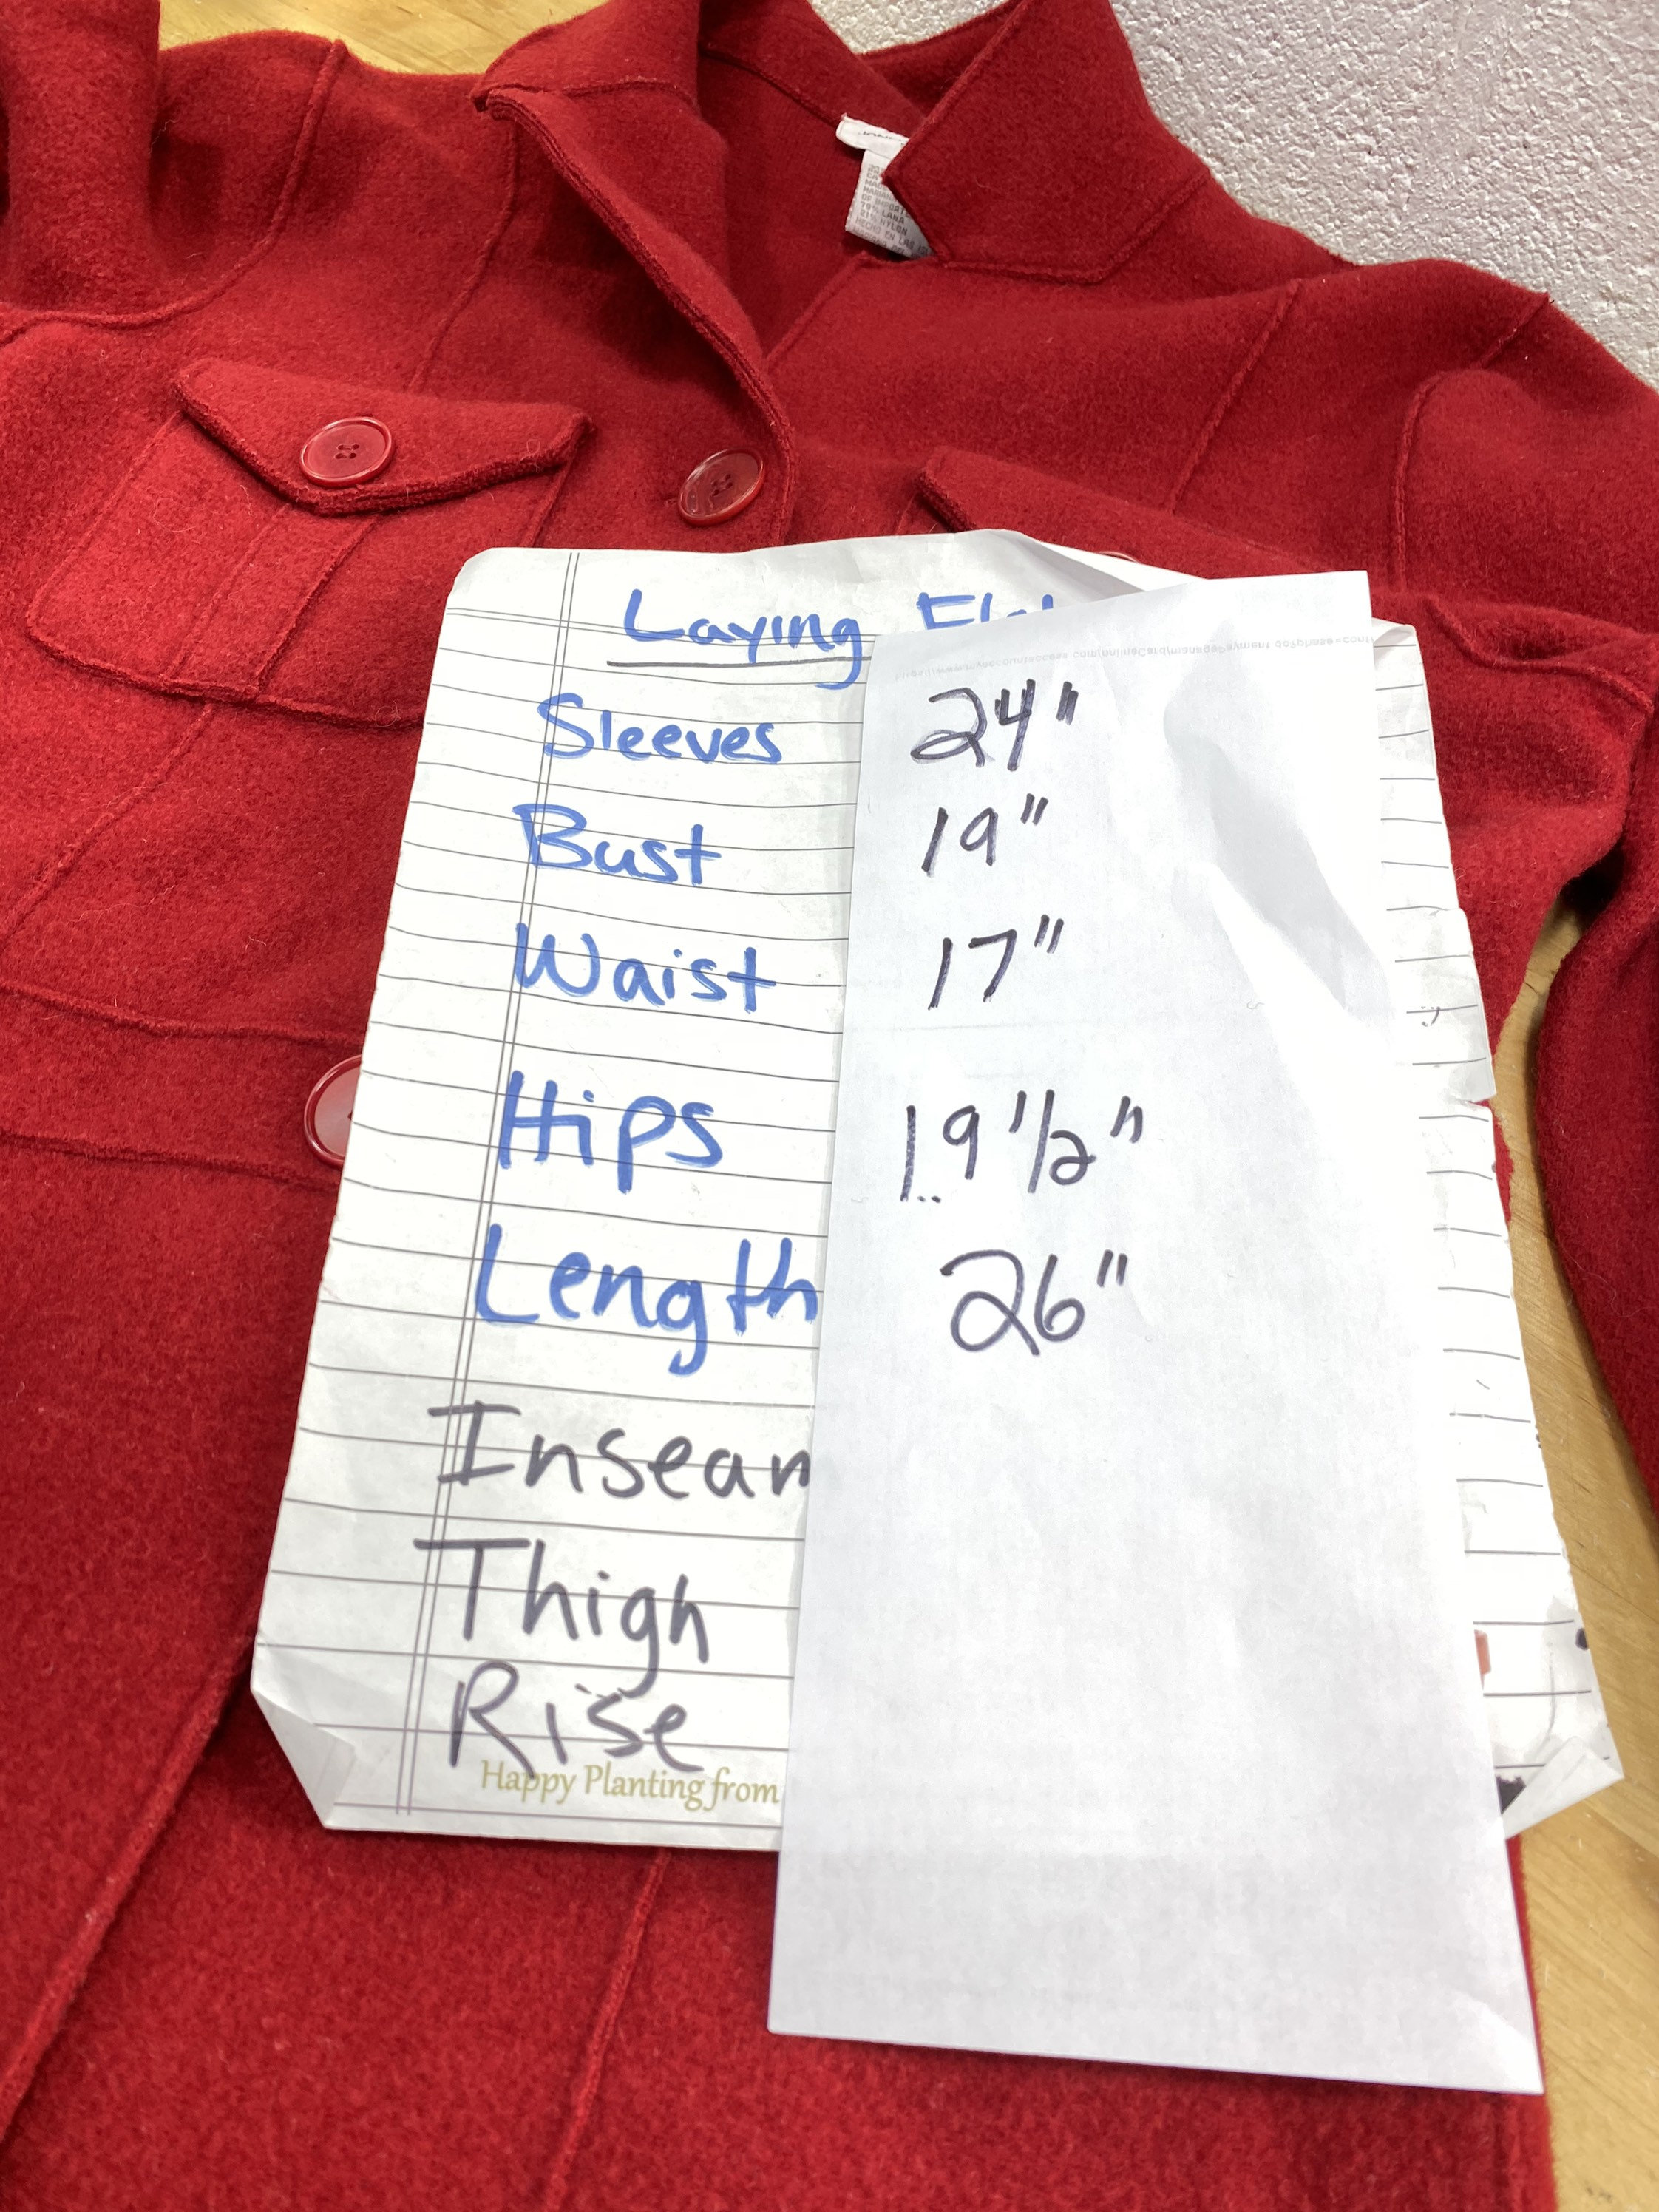 79% LANA
21% NYLON
Laying
Sleeves 24"
Bust 19"
Waist 17"
Hips 19 1/2"
Length 26"
Inseam
Thigh
Rise
Happy Planting from